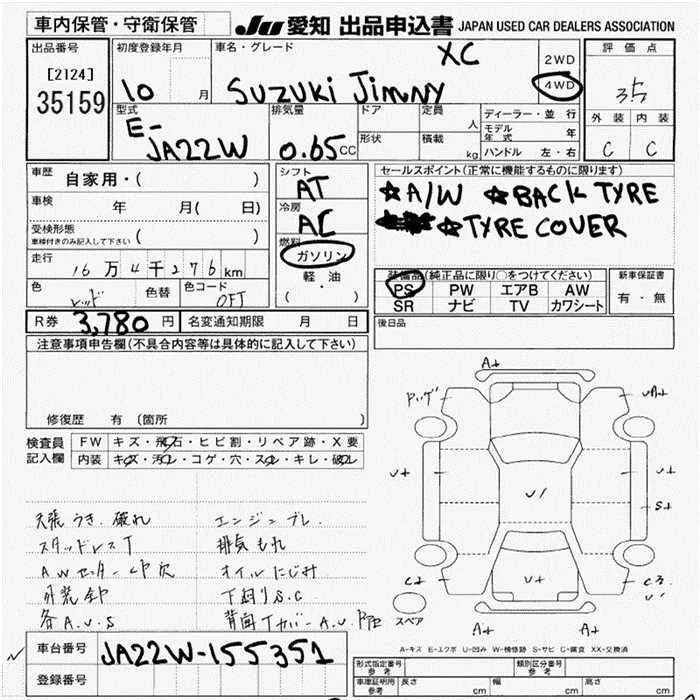 車内保管・守衛保管
JU 愛知 出品申込書 JAPAN USED CAR DEALERS ASSOCIATION
出品番号 [2124] 35159
初度登録年月 10 月
車名・グレード XC
SUZUKI JIMNY
2WD
4WD
評価点
3.5
外装 内装
C C
型式 E-JA22W
排気量 0.65 CC
ドア
定員 人
形状
積載 kg
ディーラー・並行
モデル年式 年
ハンドル 左・右
車歴 自家用・( )
車検 年 月( 日)
受検形態 ( )
車検付きのみ記入して下さい
走行 16万4千276km
色 レッド 色替
色コード 0FT
シフト AT
冷房 AC
燃料
ガソリン
軽・油
( )
セールスポイント(正常に機能するものに限ります)
☆A/W ☆BACK TYRE
☆TYRE COVER
装備品(純正品に限り○をつけてください)
PS PW エアB AW
SR ナビ TV カワシート
新車保証書
有・無
R券 3,780円
名変通知期限 月 日
後日品
注意事項申告欄(不具合内容等は具体的に記入して下さい)
修復歴 有 〔箇所 〕
検査員記入欄
FW キズ・飛石・ヒビ割・リペア跡・X要
内装 キズ・汚れ・コゲ・穴・スレ・キレ・破れ
天張うき、破れ
スタッドレスT
AWセンターCP欠
外装全P
各A.U.S
エンジンブレ.
排気もれ
オイルにじみ
下廻りS.C
A+
UA+
U+ U/ U+
S+
C+ U+ C3
U'
スペア A+ A+
A-キズ E-エクボ U-凹み W-補修跡 S-サビ C-腐食 XX-交換済
車台番号 JA22W-155351
登録番号
形式指定番号 参考
類別区分番号 参考
車庫証明用 参考 長さ cm 幅 cm 高さ cm